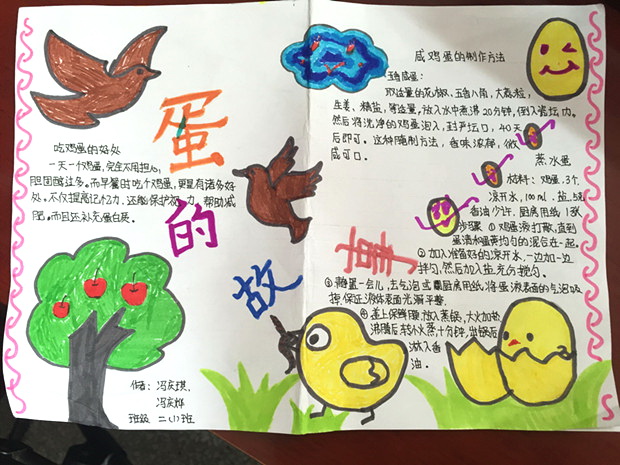 蛋
的
故
事
吃鸡蛋的好处
一天一个鸡蛋,完全不用担心,
胆固醇过多。而早餐时吃个鸡蛋,更是有诸多好
处,不仅提高记忆力,还能保护视力,帮助减
肥。而且还补充蛋白质。
作者:冯庆琪、
冯庆烨
班级 二(1)班
咸鸡蛋的制作方法
五香咸蛋:
取适量的花椒、五香八角、大茴粒,
生姜、精盐,等适量,放入水中煮沸20分钟,倒入瓷坛内。
然后将洗净的鸡蛋泡入,封严坛口,40天
后即可。这种腌制方法,香味浓郁,微
咸可口。
蒸水蛋
材料:鸡蛋3个
凉开水,100ml.盐,5克
香油少许、厨房用纸1张
步骤 ①鸡蛋液打散,直到
蛋清和蛋黄均匀的混合在一起。
②加入准备好的凉开水,一边加一边
拌匀,然后加入盐充分搅匀。
③静置一会儿,去气泡或用厨房用纸将蛋液表面的气泡吸
掉,保证液体表面光滑平整,
④盖上保鲜膜,放入蒸锅,大火加热
沸腾后转小火蒸十分钟,出锅后
放入香
油.